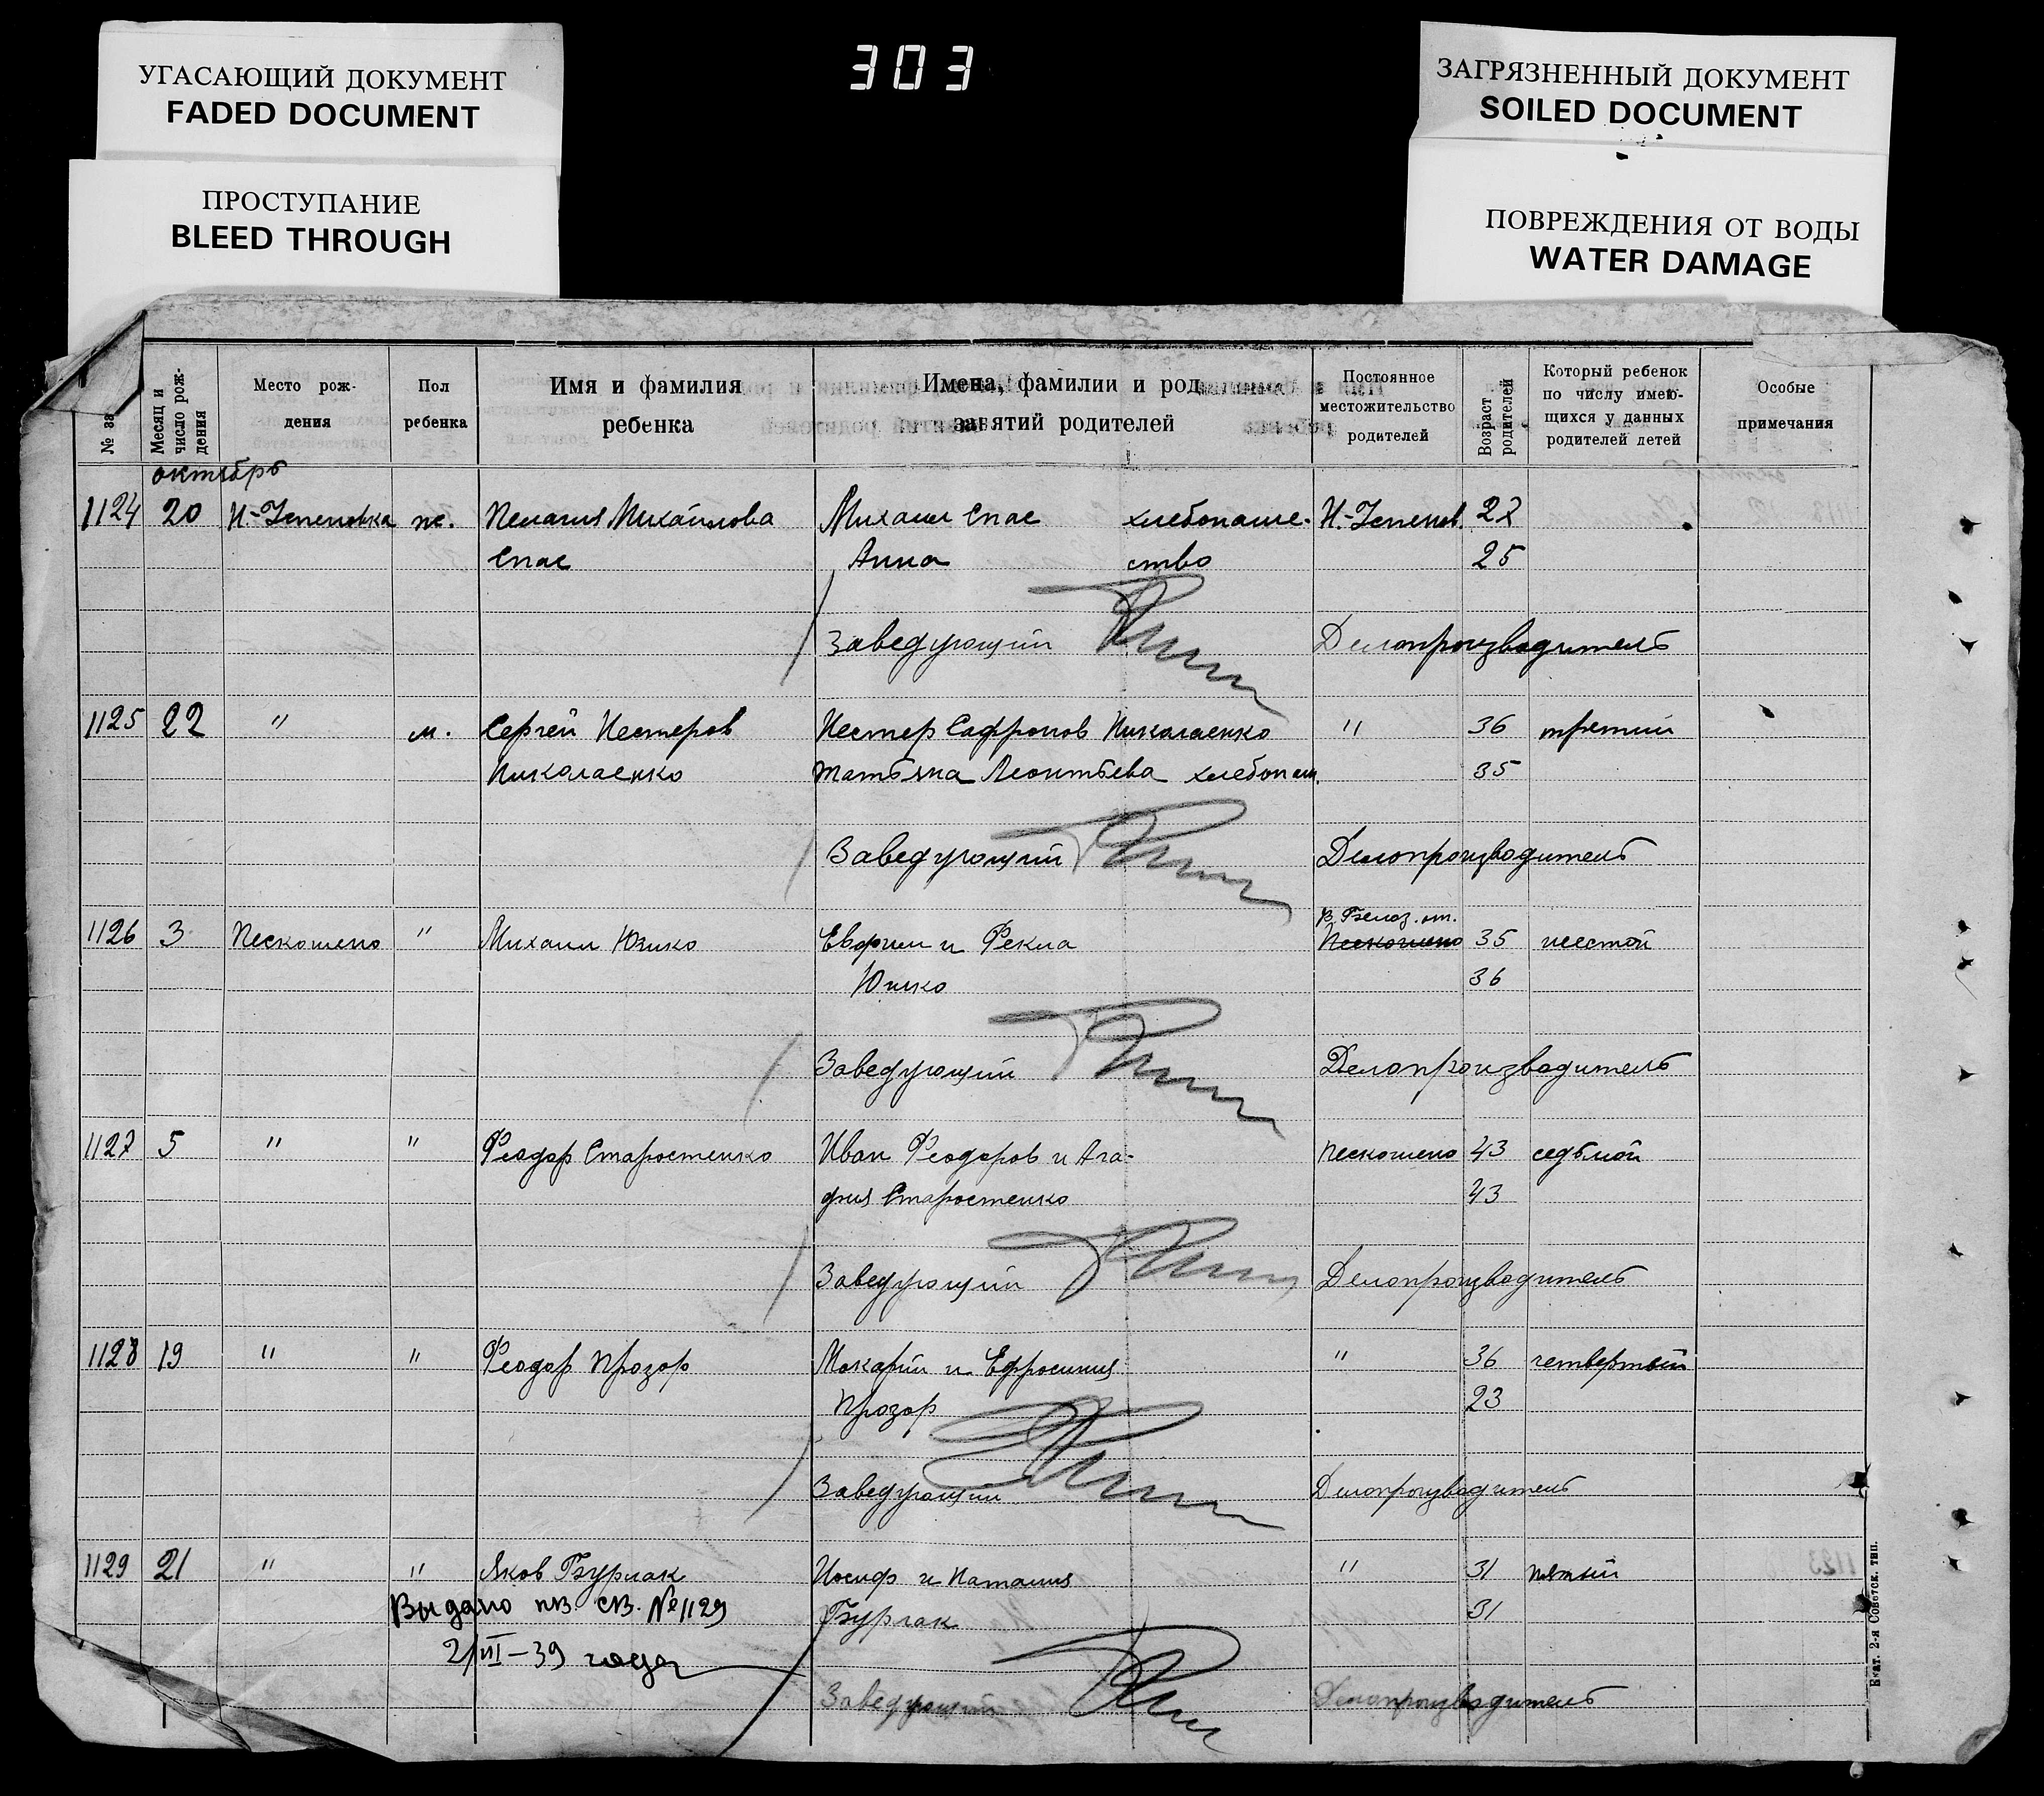 303
УГАСАЮЩИЙ ДОКУМЕНТ
FADED DOCUMENT
ПРОСТУПАНИЕ
BLEED THROUGH
ЗАГРЯЗНЕННЫЙ ДОКУМЕНТ
SOILED DOCUMENT
ПОВРЕЖДЕНИЯ ОТ ВОДЫ
WATER DAMAGE
№ за
Месяц и число рож-дения
Место рож-
дения
Пол
ребенка
Имя и фамилия
ребенка
Имена, фамилии и род
занятий родителей
Постоянное
местожительство
родителей
Возраст родителей
Который ребенок
по числу имею-
щихся у данных
родителей детей
Особые
примечания
октябрь
1124 20 Н.-Успеновка ж. Пелагия Михайлова Михаил Спас хлебопаше- Н.-Успенов. 27
Спас Анна ство 25
Заведующий Делопроизводитель
1125 22 " м. Сергей Нестеров Нестер Сафронов Николаенко " 36 третий
Николаенко Татьяна Леонтьева хлебопаш. 35
Заведующий Делопроизводитель
В. Белоз. от.
1126 3 Пескошено " Михаил Юшко Евфим и Фекла Пескошено 35 шестой
Юшко 36
Заведующий Делопроизводитель
1127 5 " " Феодор Старостенко Иван Феодоров и Ага- Пескошено 43 седьмой
фия Старостенко 43
Заведующий Делопроизводитель
1128 19 " " Феодор Прозор Макарий и Ефросиния " 36 четвертый
Прозор 23
Заведующий Делопроизводитель
1129 21 " " Яков Бурлак Иосиф и Наталия " 31 пятый
Выдано пв. св. № 1129 Бурлак 31
2/VII-39 года
Заведующий Делопроизводитель
Екат. 2-я Советск. тип.